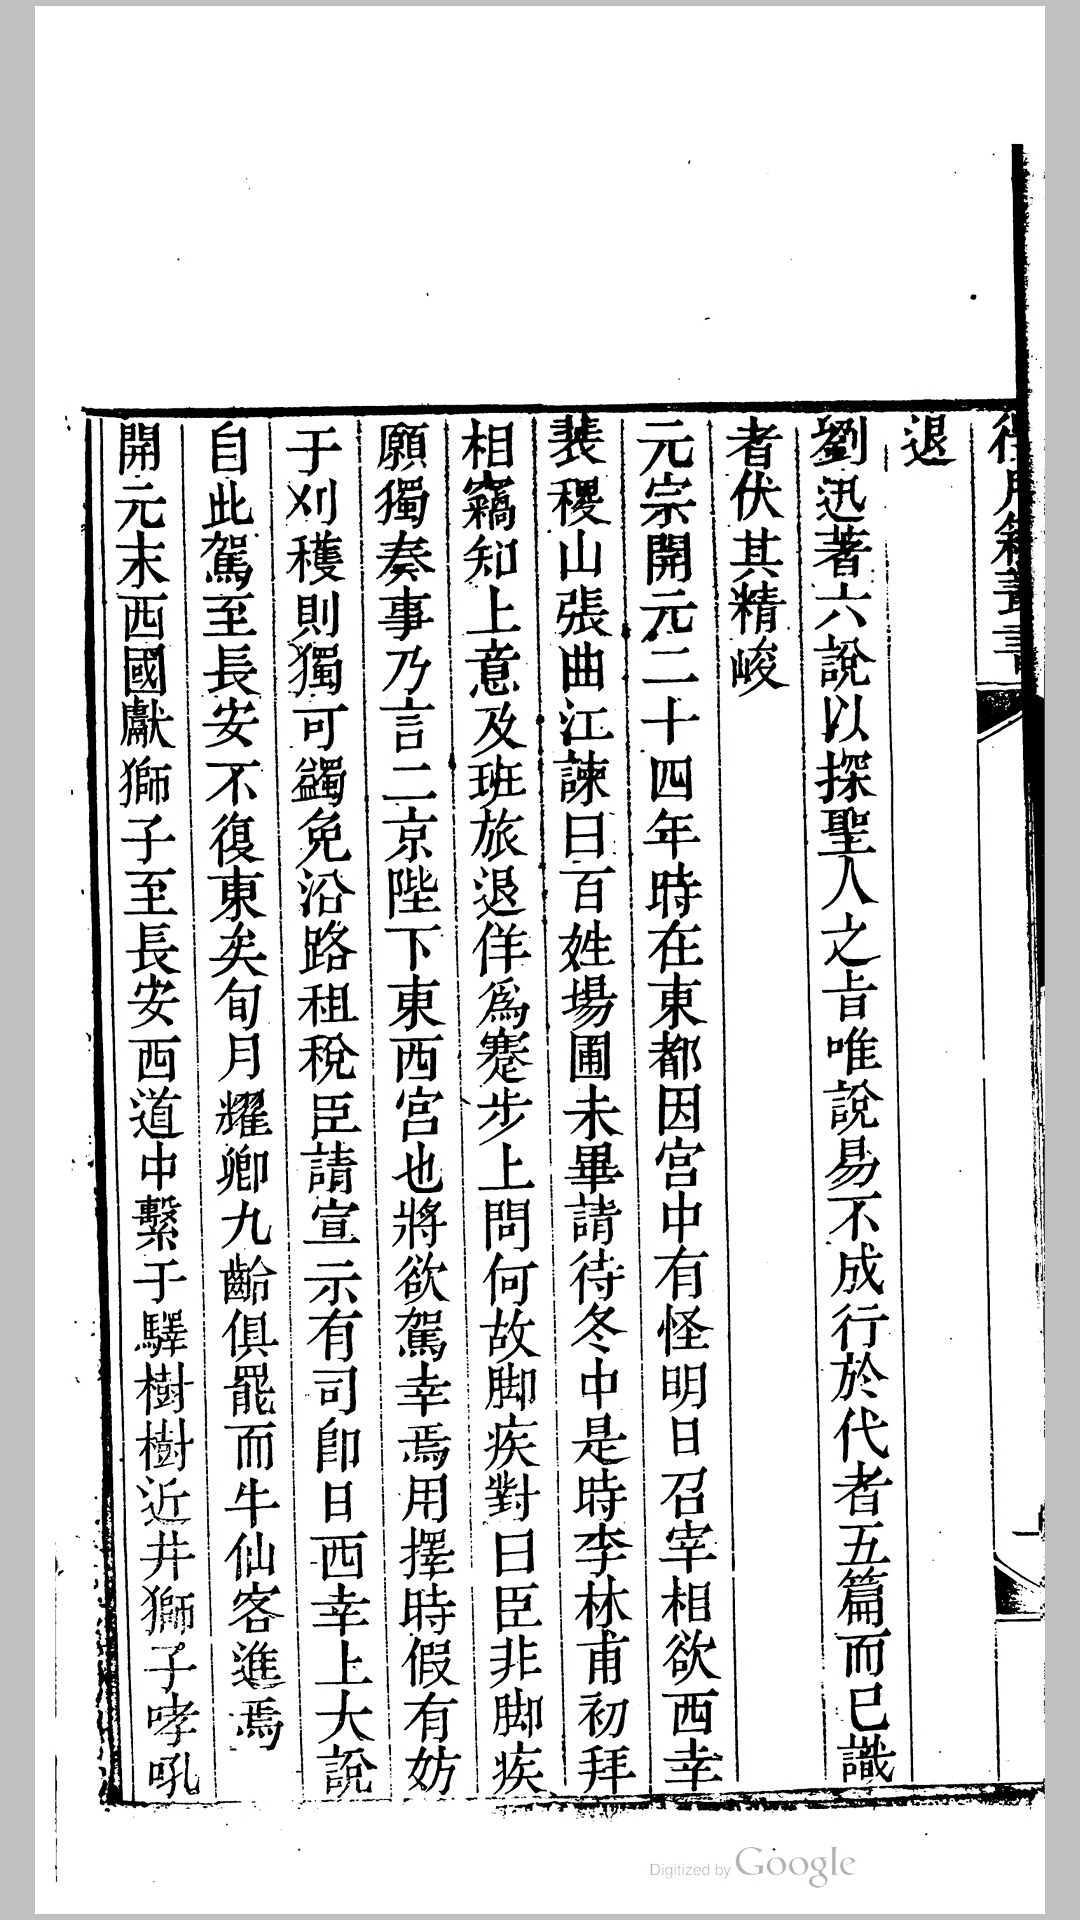 退
劉迅著六說以探聖人之旨唯說易不成行於代者五篇而已識
者伏其精峻
元宗開元二十四年時在東都因宮中有怪明日召宰相欲西幸
裴稷山張曲江諫曰百姓場圃未畢請待冬中是時李林甫初拜
相竊知上意及班旅退佯為蹇步上問何故脚疾對曰臣非脚疾
願獨奏事乃言二京陛下東西宮也將欲駕幸焉用擇時假有妨
于刈穫則獨可蠲免沿路租稅臣請宣示有司卽日西幸上大說
自此駕至長安不復東矣旬月耀卿九齡俱罷而牛仙客進焉
開元末西國獻獅子至長安西道中繫于驛樹樹近井獅子哮吼
Digitized by Google